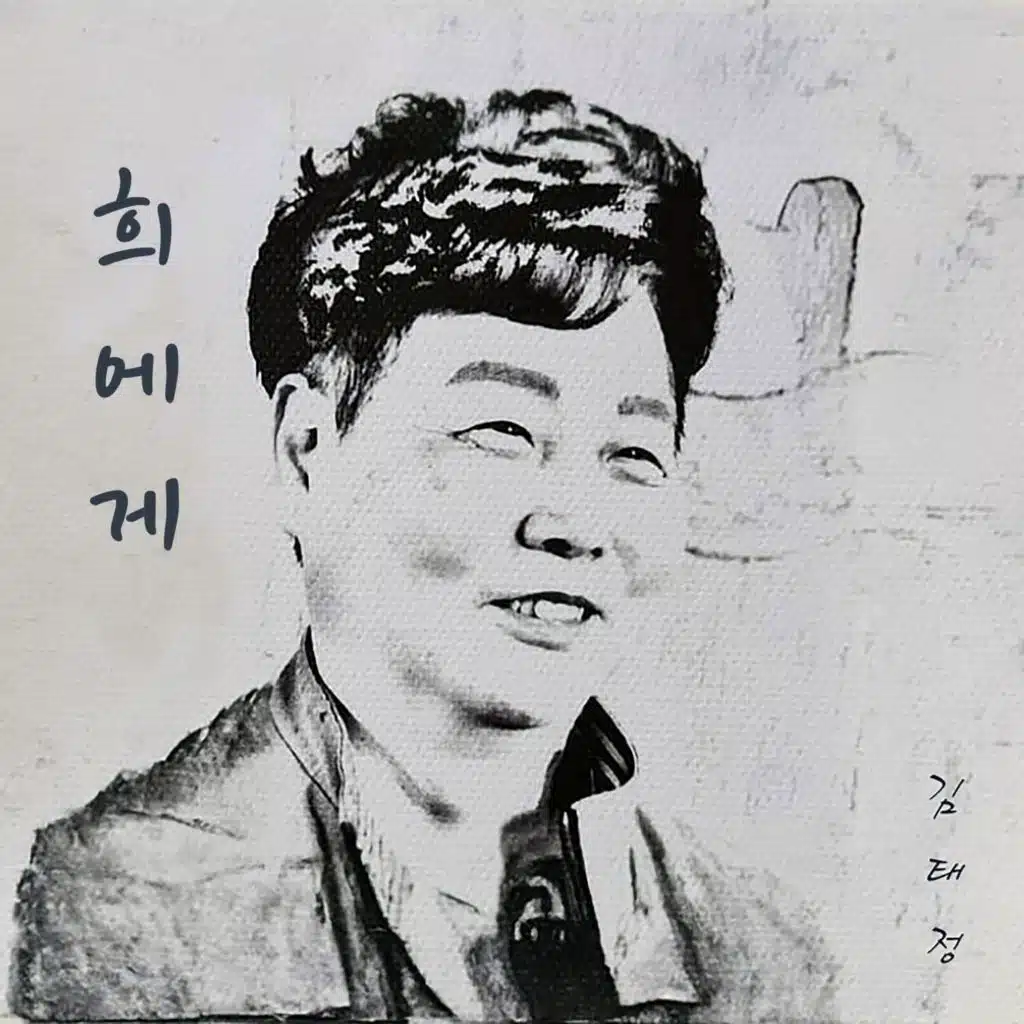 희에게
김태정